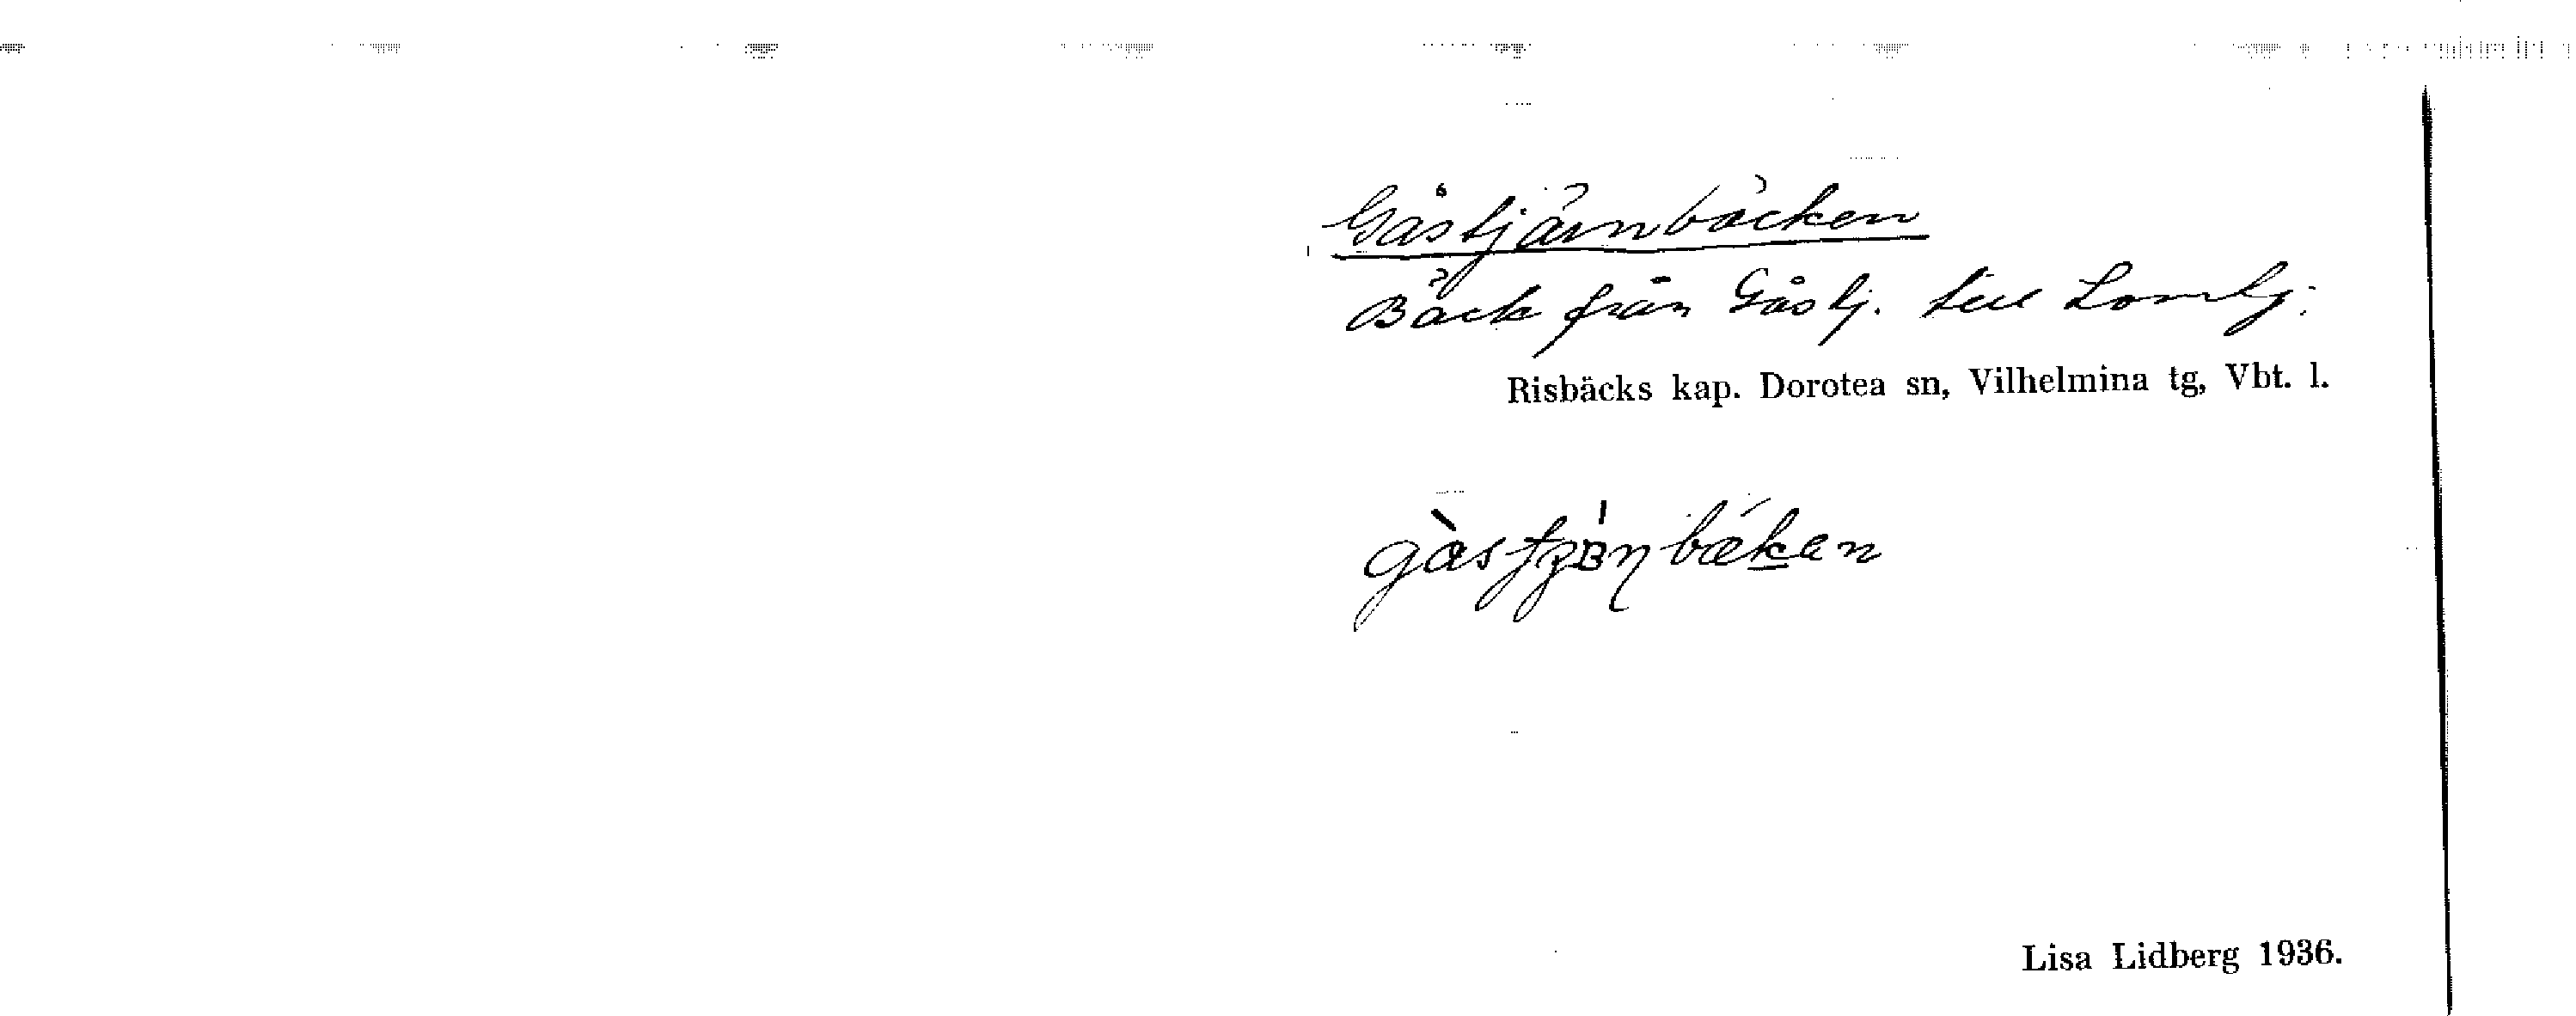 Gåstjärnbäcken
Bäck från Gåstj. till Lomtj.
Risbäcks kap. Dorotea sn, Vilhelmina tg, Vbt. l.
Lisa Lidberg 1936.